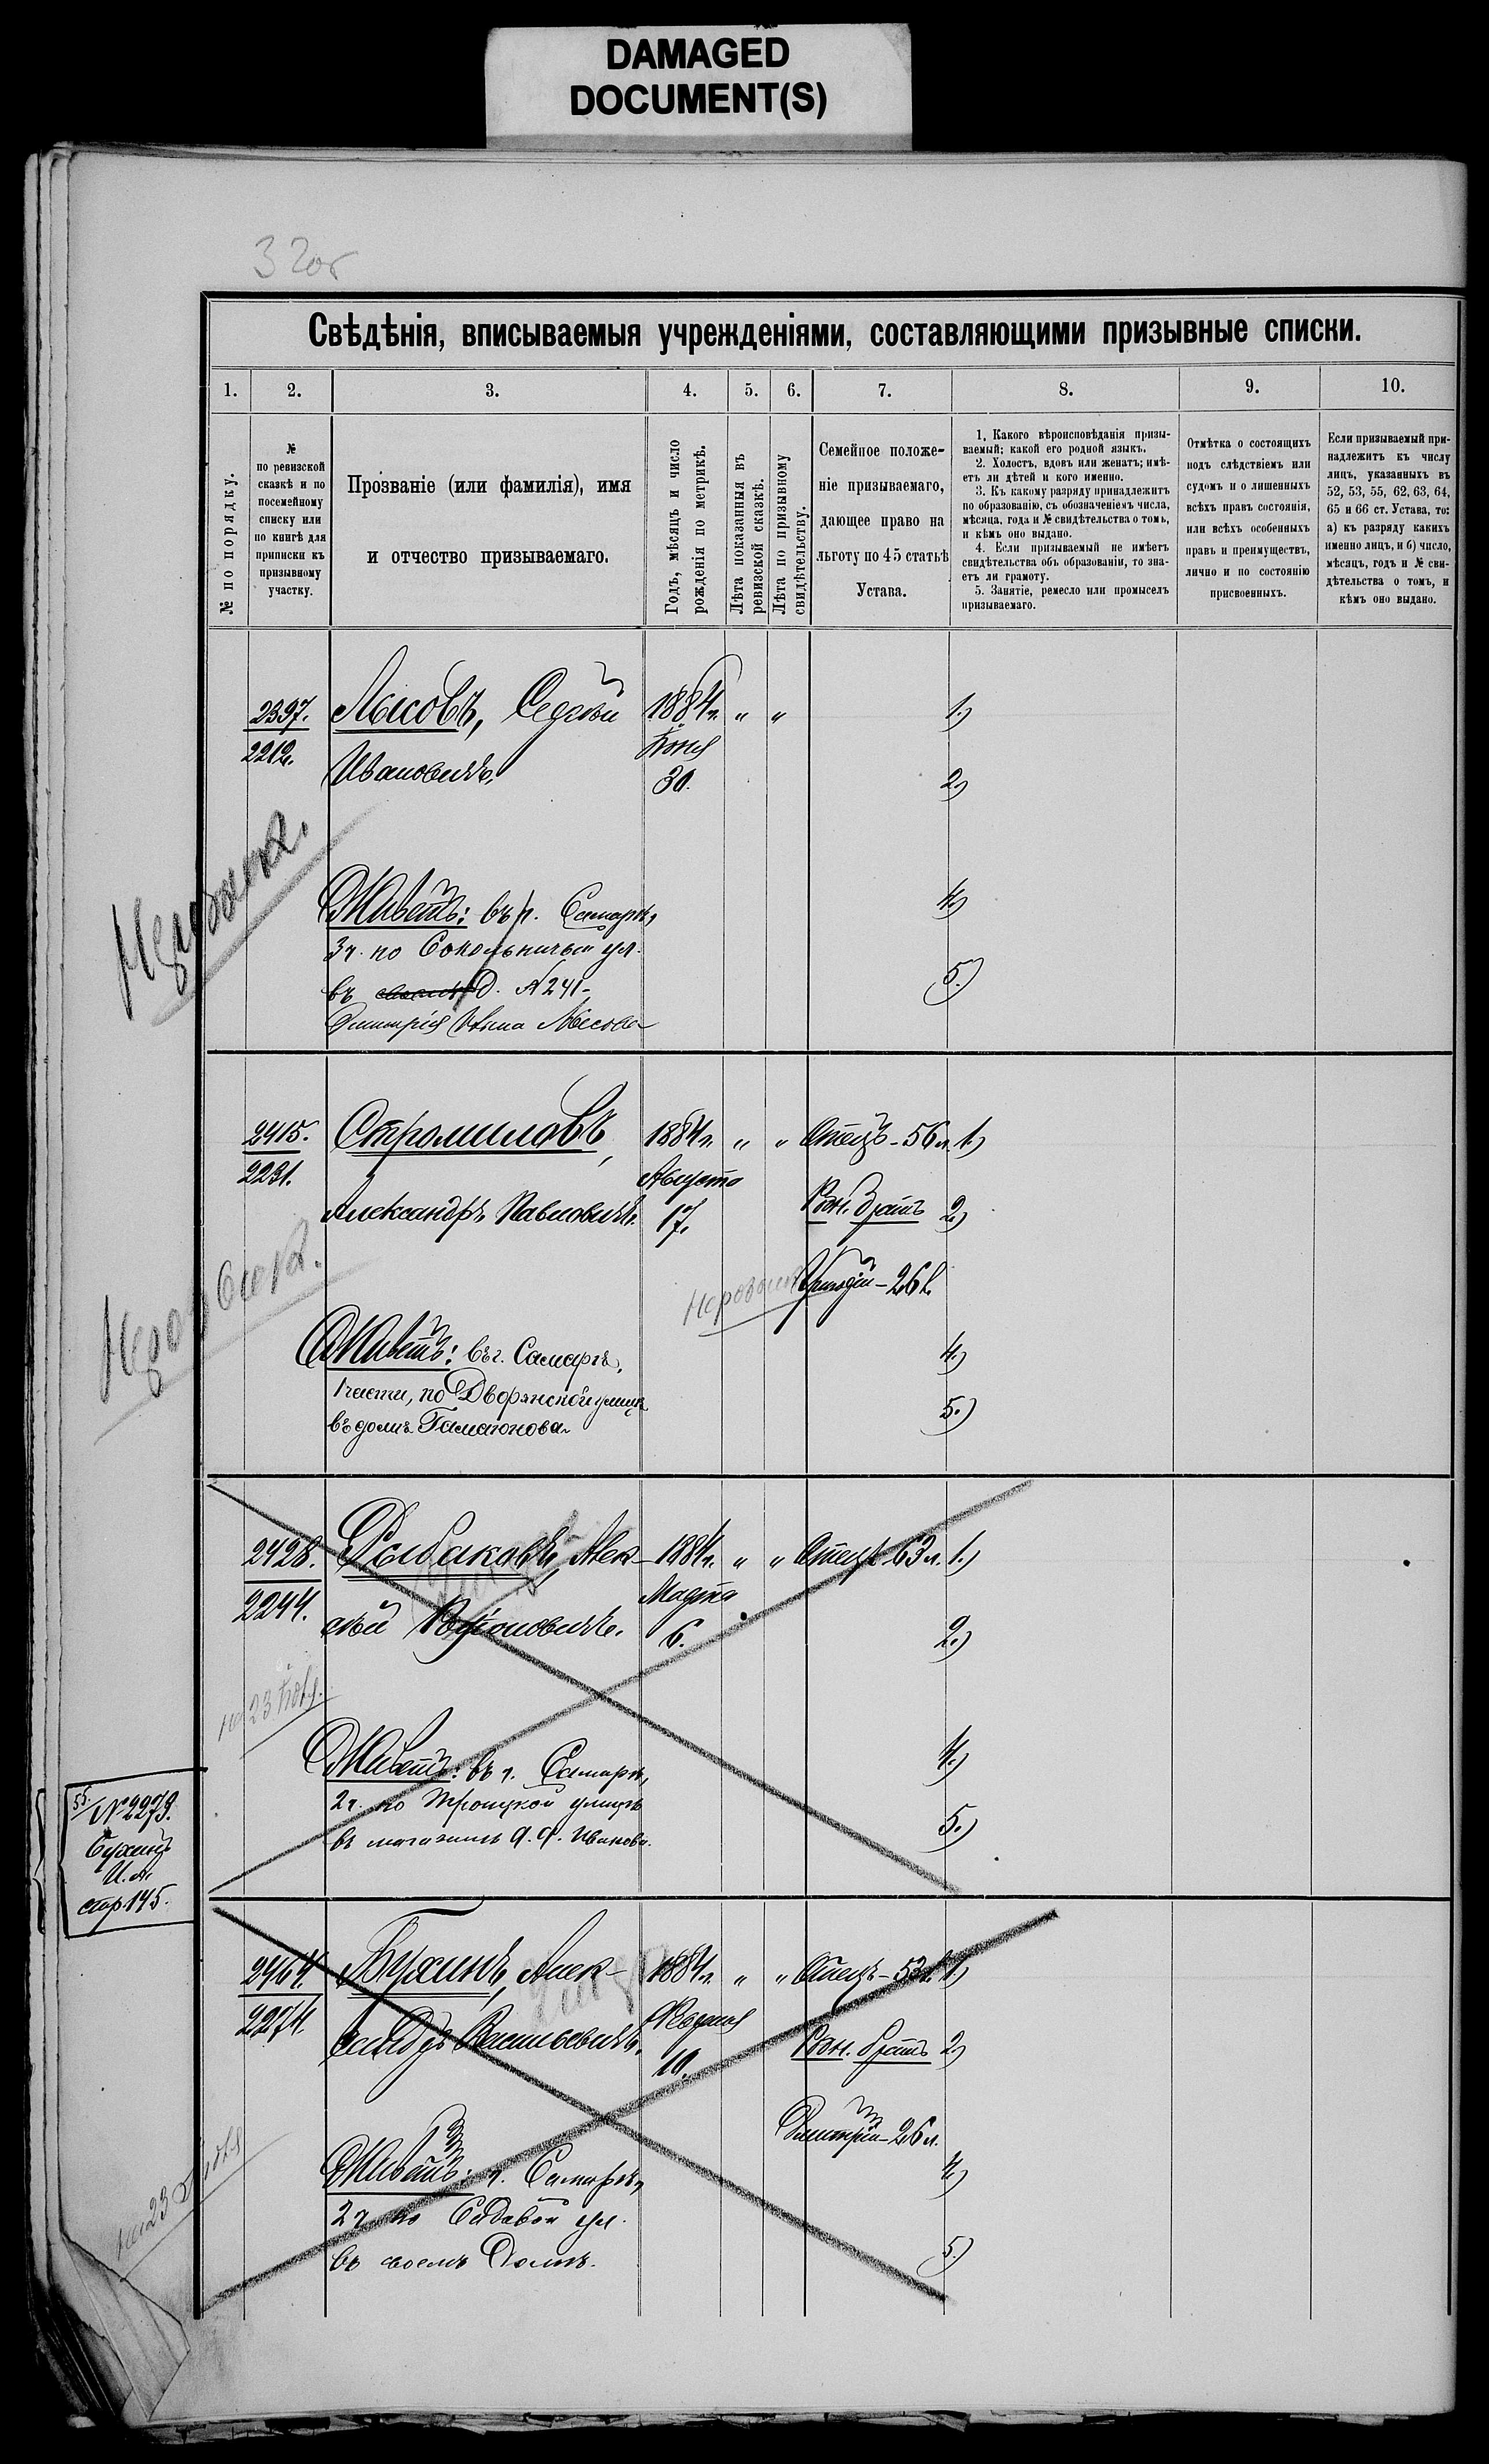 DAMAGED
DOCUMENT(S)
32об
Свѣдѣнія, вписываемыя учрежденіями, составляющими призывные списки.
1. 2. 3. 4. 5. 6. 7. 8. 9. 10.
№ по порядку.
№
по ревизской
сказкѣ и по
посемейному
списку или
по книгѣ для
приписки къ
призывному
участку.
Прозваніе (или фамилія), имя
и отчество призываемаго.
Годъ, мѣсяцъ и число
рожденія по метрикѣ.
Лѣта показанныя въ
ревизской сказкѣ.
Лѣта по призывному
свидѣтельству.
Семейное положе-
ніе призываемаго,
дающее право на
льготу по 45 статьѣ
Устава.
1. Какого вѣроисповѣданія призы-
ваемый; какой его родной языкъ.
2. Холостъ, вдовъ или женатъ; имѣ-
етъ ли дѣтей и кого именно.
3. Къ какому разряду принадлежитъ
по образованію, съ обозначеніемъ числа,
мѣсяца, года и № свидѣтельства о томъ,
и кѣмъ оно выдано.
4. Если призываемый не имѣетъ
свидѣтельства объ образованіи, то зна-
етъ ли грамоту.
5. Занятіе, ремесло или промыселъ
призываемаго.
Отмѣтка о состоящихъ
подъ слѣдствіемъ или
судомъ и о лишенныхъ
всѣхъ правъ состоянія,
или всѣхъ особенныхъ
правъ и преимуществъ,
лично и по состоянію
присвоенныхъ.
Если призываемый при-
надлежитъ къ числу
лицъ, указанныхъ въ
52, 53, 55, 62, 63, 64,
65 и 66 ст. Устава, то:
а) къ разряду какихъ
именно лицъ, и б) число,
мѣсяцъ, годъ и № сви-
дѣтельства о томъ, и
кѣмъ оно выдано.
2397. Лысовъ, Сергѣй 1884г. " " 1.)
2212. Ивановичъ. Іюня
30. 2.)
Живетъ: въ г. Самарѣ, 4.)
3ч. по Сокольничьей ул.
въ д. №241 5.)
Лысова
2415. Стромиловъ, 1884г. " " Отецъ-56л. 1.)
2231. Августа
Александръ Павловичъ. 17. Родн. братъ 2.)
26 л.
Живетъ: въ г. Самарѣ, 4.)
1 части, по Дворянской улицѣ
въ домѣ Гамаюнова 5.)
2428. Рыбаковъ, Алек- 1884г. " " Отецъ-63л. 1.)
2244. Марта
сѣй Родіоновичъ. 6. 2.)
на 23 Ноя.
Живетъ: въ г. Самарѣ, 4.)
2ч. по Троицкой улицѣ
въ магазинѣ Иванова. 5.)
55.
№2273.
Бухинъ
И. А.
стр 145.
2464. Бухинъ, Алек- 1884г. " " Отецъ-53л. 1.)
2274. Февраля
сандръ Васильевичъ. 10. Родн. братъ 2.)
Дмитрій-26 л.
Живетъ: г. Самарѣ, 4.)
2ч по Садовой ул.
въ своемъ домѣ. 5.)
на 23 Ноя